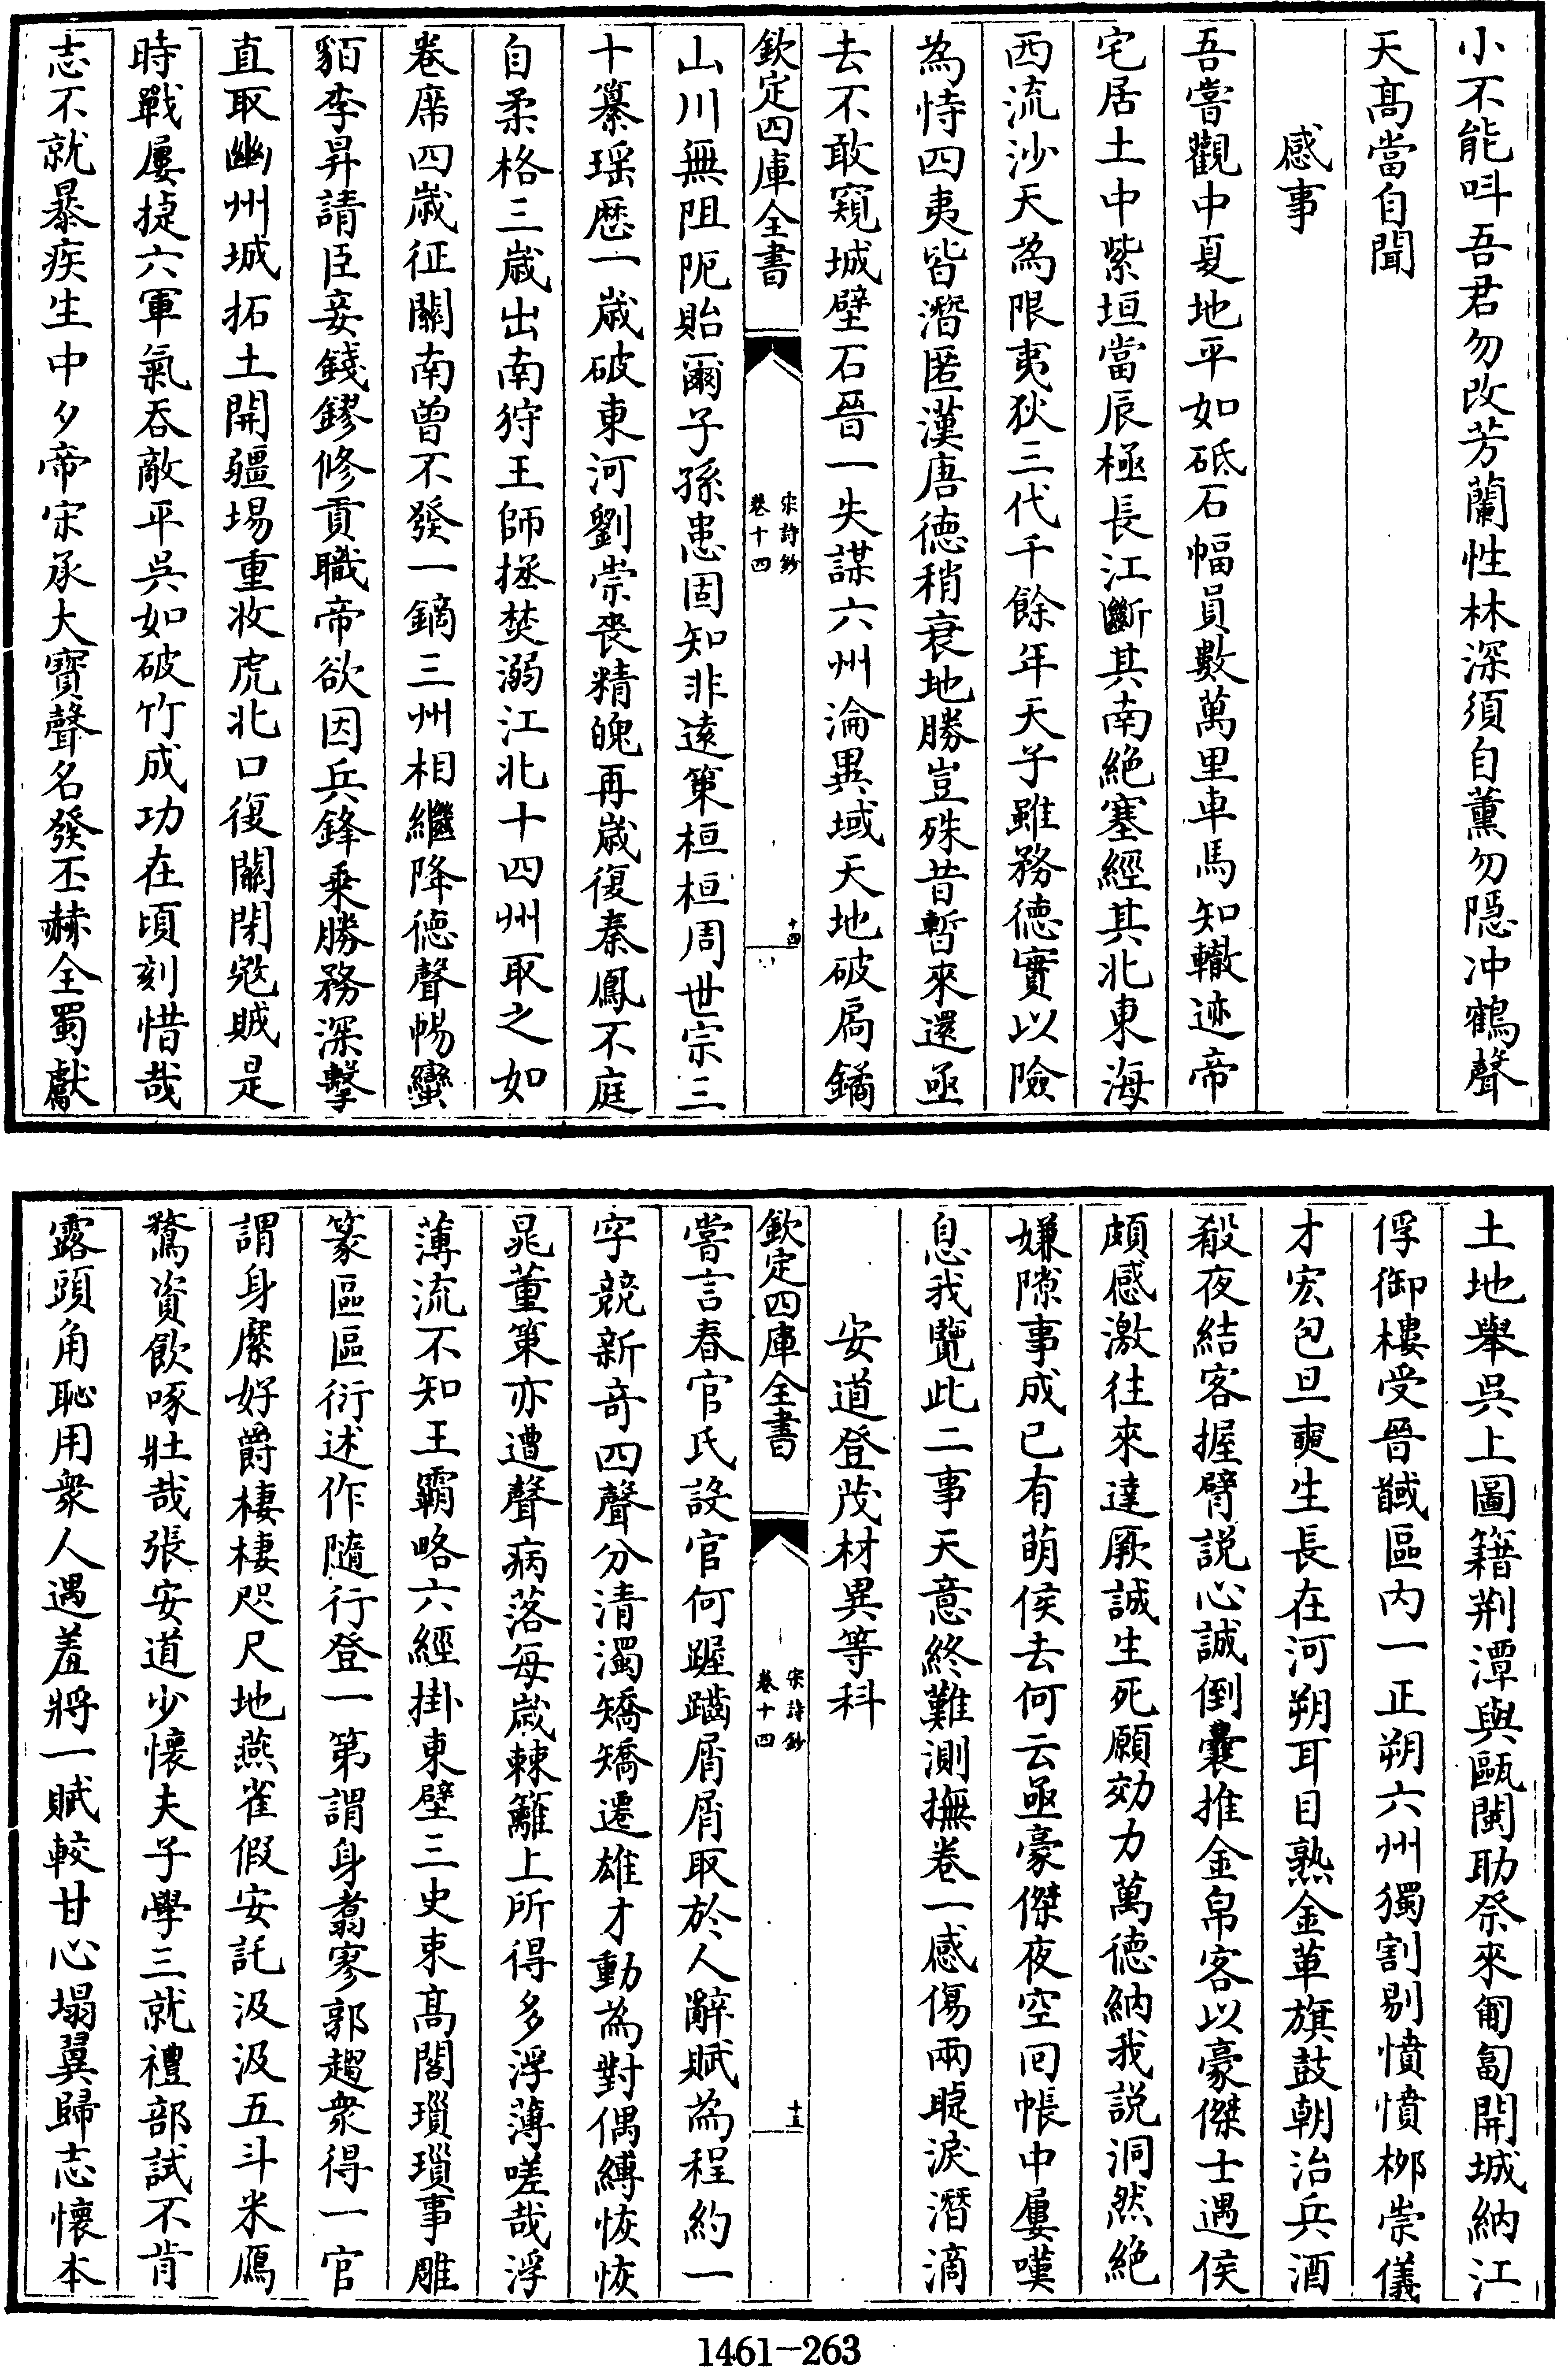 小不能呌吾君勿改芳蘭性林深須自薰勿隠冲鶴聲
天髙當自聞
感事
吾嘗觀中夏地平如砥石幅員數萬里車馬知轍迹帝
宅居土中紫垣當辰極長江斷其南絶塞經其北東海
西流沙天為限夷狄三代千餘年天子雖務德實以險
為恃四夷皆潛匿漢唐德稍衰地勝豈殊昔暫來還亟
去不敢窺城壁石晉一失謀六州淪異域天地破扃鐍
欽定四庫全書
宋詩鈔
卷十四
十四
山川無阻阨貽爾子孫患固知非遠策桓桓周世宗三
十纂瑶厯一歳破東河劉崇喪精魄再歳復秦鳳不庭
自柔格三歳出南狩王師拯焚溺江北十四州取之如
卷席四歳征關南曾不發一鏑三州相繼降德聲暢蠻
貊李昇請臣妾錢鏐修貢職帝欲因兵鋒乗勝務深擊
直取幽州城拓土開疆埸重收虎北口復關閉宼賊是
時戰屢捷六軍氣吞敵平吳如破竹成功在頃刻惜哉
志不就暴疾生中夕帝宋承大寶聲名發丕赫全蜀獻
土地舉吳上圖籍荆潭與甌閩助祭來匍匐開城納江
俘御樓受晉馘區内一正朔六州獨割剔憤憤栁崇儀
才宏包旦奭生長在河朔耳目熟金革旗鼓朝治兵酒
殽夜結客握臂説心誠倒囊推金帛客以豪傑士遇侯
頗感激往來達厥誠生死願効力萬德納我説洞然絶
嫌隙事成已有萌侯去何云亟豪傑夜空囘帳中屢嘆
息我覽此二事天意終難測撫卷一感傷兩睫淚潛滴
安道登茂材異等科
欽定四庫全書
宋詩鈔
卷十四
十五
嘗言春官氏設官何踸齱屑屑取於人辭賦為程約一
字競新竒四聲分清濁矯矯遷雄才動為對偶縛恢恢
晁董策亦遭聲病落每歳棘籬上所得多浮薄嗟哉浮
薄流不知王霸略六經掛東壁三史束髙閣瑣瑣事雕
篆區區衍述作隨行登一第謂身翥寥郭趨衆得一官
謂身縻好爵棲棲咫尺地燕雀假安託汲汲五斗米鴈
鶩資飲啄壯哉張安道少懷夫子學三就禮部試不肯
露頭角恥用衆人遇羞將一賦較甘心塌翼歸志懷本
1461-263